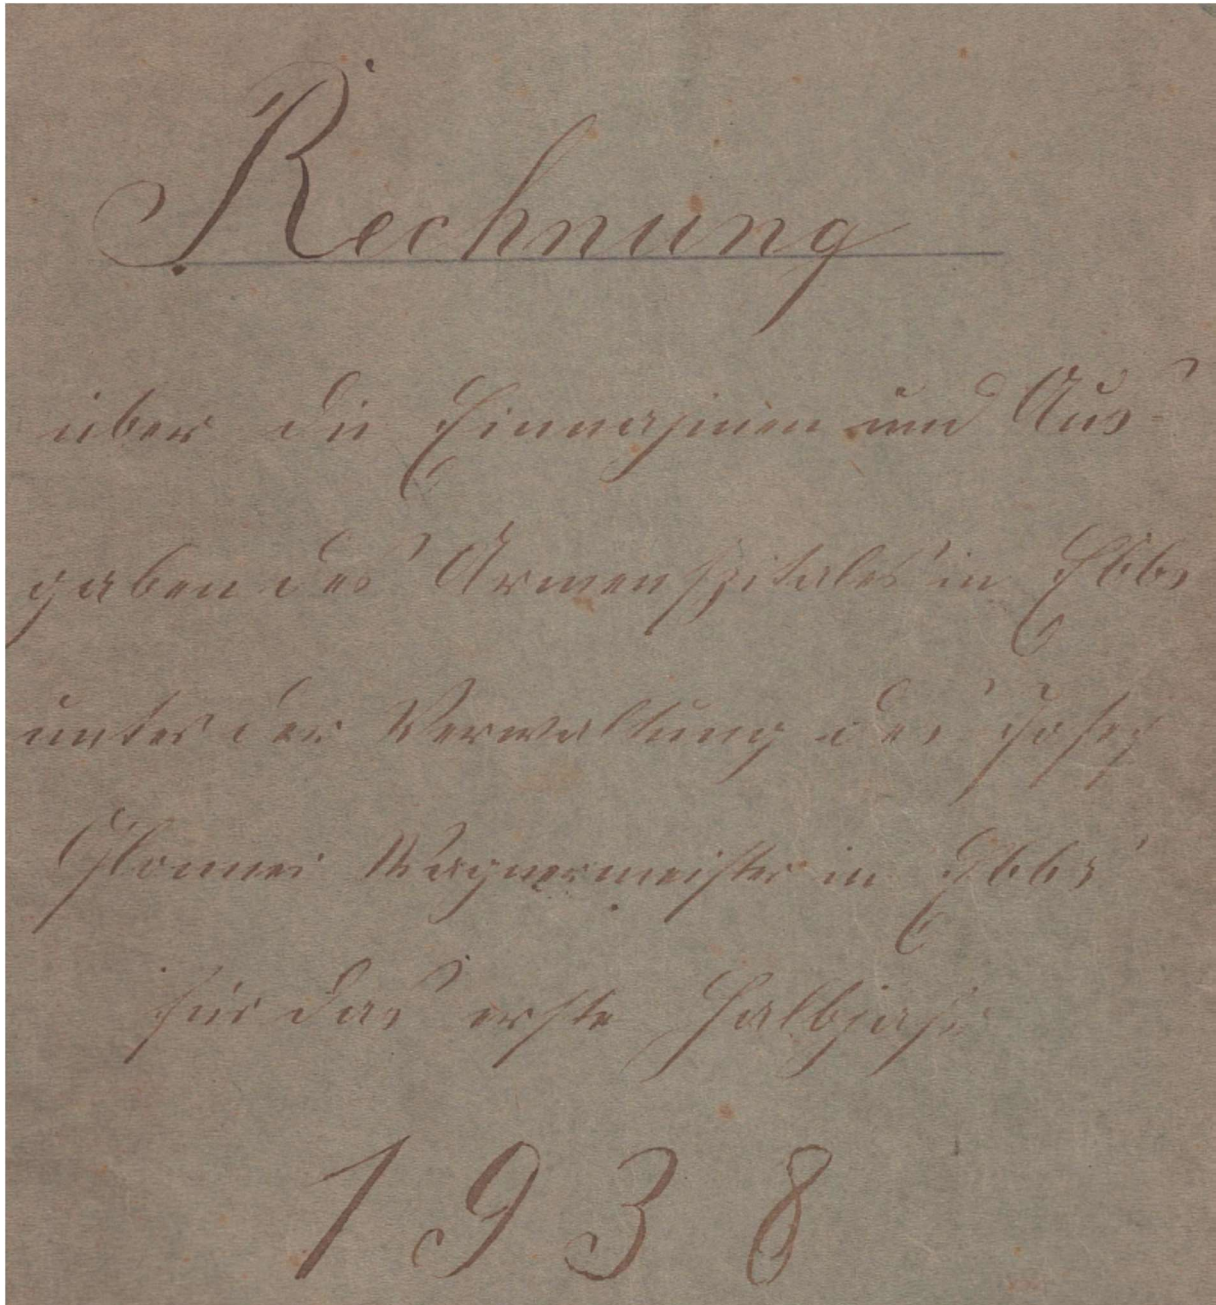 Rechnung
über die Einnahmen und Aus-
gaben des Armenspitales in Ebbs
unter der Verwaltung des Josef
Glonner Wagnermeister in Ebbs
für das erste Halbjahr
1938